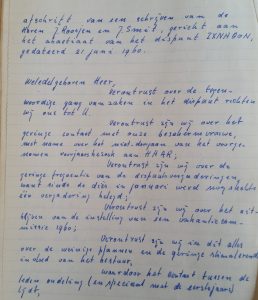 afschrift van een schrijven van de
Heren J. Haarsen en J. Smit, gericht aan
het abactiaat van het dispuut ZKNNBON,
gedateerd 21 juni 1960.
Weledelgeboren Heer,
Verontrust over de tegen-
woordige gang van zaken in het dispuut richten
wij ons tot U.
Verontrust zijn wij over het
geringe contact met onze beschermvrouwe,
met name over het niet-doorgaan van het voorge-
nomen voorjaarsbezoek aan HAAR;
Verontrust zijn wij over de
geringe frequentie van de dispuutsvergaderingen,
want sinds de dies in januari werd nog slechts
één vergadering belegd;
Verontrust zijn wij over het uit-
blijven van de instelling van een vakantiecom-
missie 1960;
Verontrust zijn wij in dit alles
over de weinige plannen en de geringe stimulerende
invloed van het bestuur,
waardoor het contact tussen de
leden onderling (en speciaal met de eerstejaars)
lijdt,